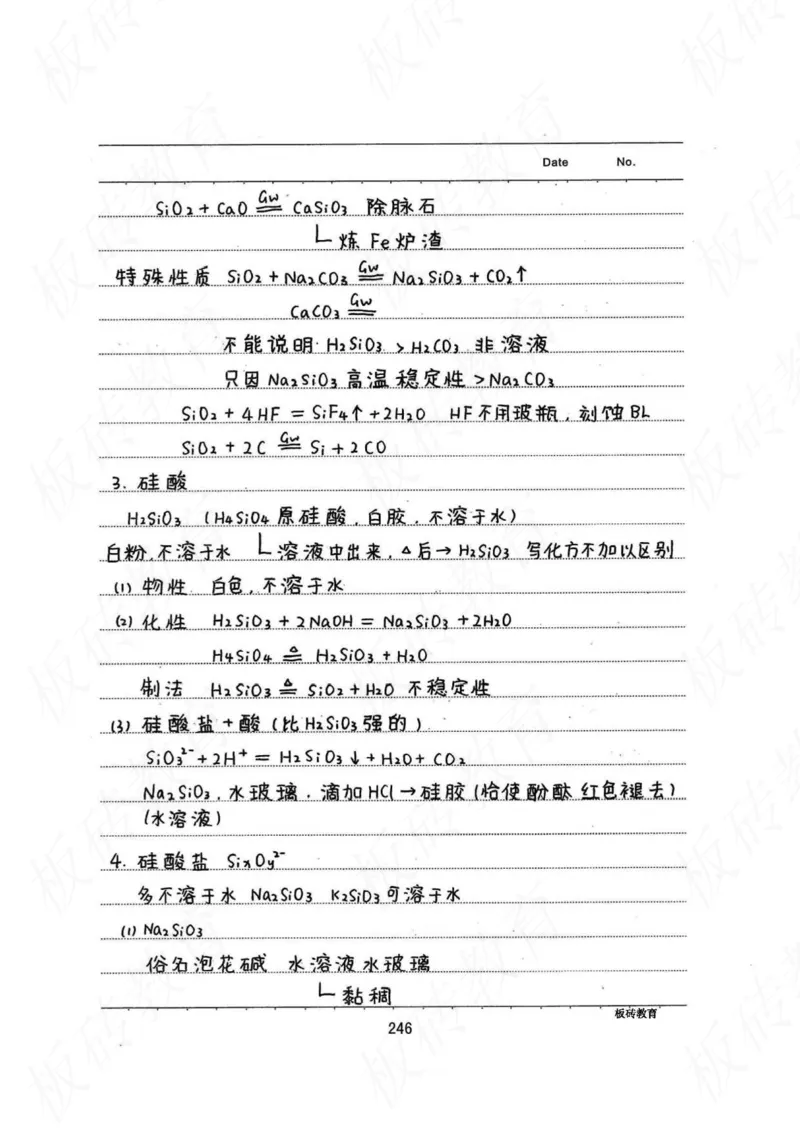 Date No.
SiO2 + CaO =GW= CaSiO3 除脉石
└ 炼Fe炉渣
特殊性质 SiO2 + Na2CO3 =GW= Na2SiO3 + CO2↑
CaCO3 =GW=
不能说明 H2SiO3 > H2CO3 非溶液
只因 Na2SiO3 高温稳定性 > Na2CO3
SiO2 + 4HF = SiF4↑ + 2H2O HF不用玻瓶，刻蚀BL
SiO2 + 2C =GW= Si + 2CO
3. 硅酸
H2SiO3 (H4SiO4 原硅酸，白胶，不溶于水)
白粉，不溶于水 └ 溶液中出来，△后→H2SiO3 写化方不加以区别
(1) 物性 白色，不溶于水
(2) 化性 H2SiO3 + 2NaOH = Na2SiO3 + 2H2O
H4SiO4 =△= H2SiO3 + H2O
制法 H2SiO3 =△= SiO2 + H2O 不稳定性
(3) 硅酸盐 + 酸 (比H2SiO3强的)
SiO3²⁻ + 2H⁺ = H2SiO3↓ + H2O + CO2
Na2SiO3，水玻璃．滴加HCl→硅胶 (恰使酚酞红色褪去)
(水溶液)
4. 硅酸盐 SixOy²⁻
多不溶于水 Na2SiO3 K2SiO3可溶于水
(1) Na2SiO3
俗名泡花碱 水溶液水玻璃
└ 黏稠
板砖教育
246